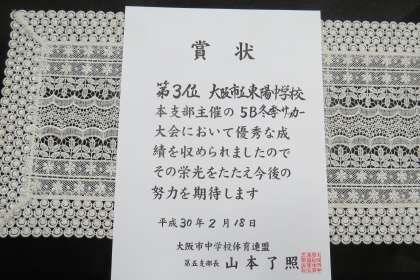 賞状
第3位 大阪市立東陽中学校
本支部主催の5B冬季サッカー
大会において優秀な成
績を収められましたので
その栄光をたたえ今後の
努力を期待します
平成30年2月18日
大阪市中学校体育連盟
第五支部長 山本了照